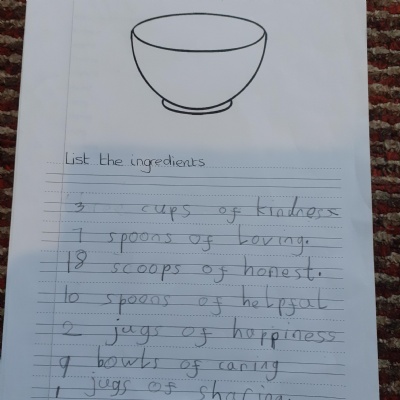 List the ingredients
3 cups of kindness
7 spoons of Loving.
18 scoops of honest.
10 spoons of helpful
2 jugs of happiness
9 bowls of caring
1 jugs of sharing.